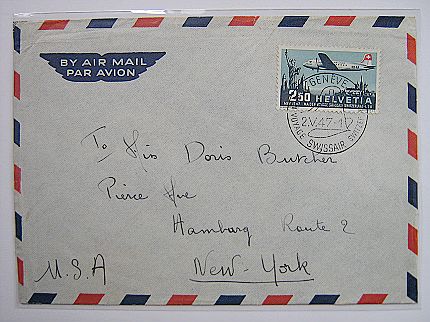 BY AIR MAIL
PAR AVION
GENÈVE
2.50 HELVETIA
2.V.47
VOYAGE SWISSAIR
To Miss Doris Butcher
Pierce Ave
Hamburg Route 2
U.S.A New-York